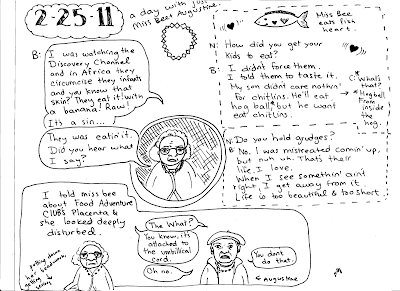 2-25-11
a day with just
Miss Bee & Augustine.
B: I was watching the
Discovery Channel
and in Africa they
circumcise they infants
and you know that
skin? They eat it! with
a banana! Raw!
It's a sin...
They was eatin' it.
Did you hear what
I say?
I told miss bee
about Food Adventure
CLUB's Placenta &
she looked deeply
disturbed.
The What?
You know, it's
attached to
the umbilical
cord.
Oh no.
You don't
do that.
← Augustine
Miss Bee
eats fish
heart.
N: How did you get your
kids to eat?
B: I didn't force them.
I told them to taste it.
My son didn't care nothin'
for chitlins. He'll eat
hog ball* but he want
eat chitlins.
C: What's
that?
*Hog ball
From
inside
the
hog.
N: Do you hold grudges?
B: No. I was mistreated comin' up,
but nuh uh. That's their
life. I love.
When I see somethin' aint
right, I get away from it
Life is too beautiful & too short.